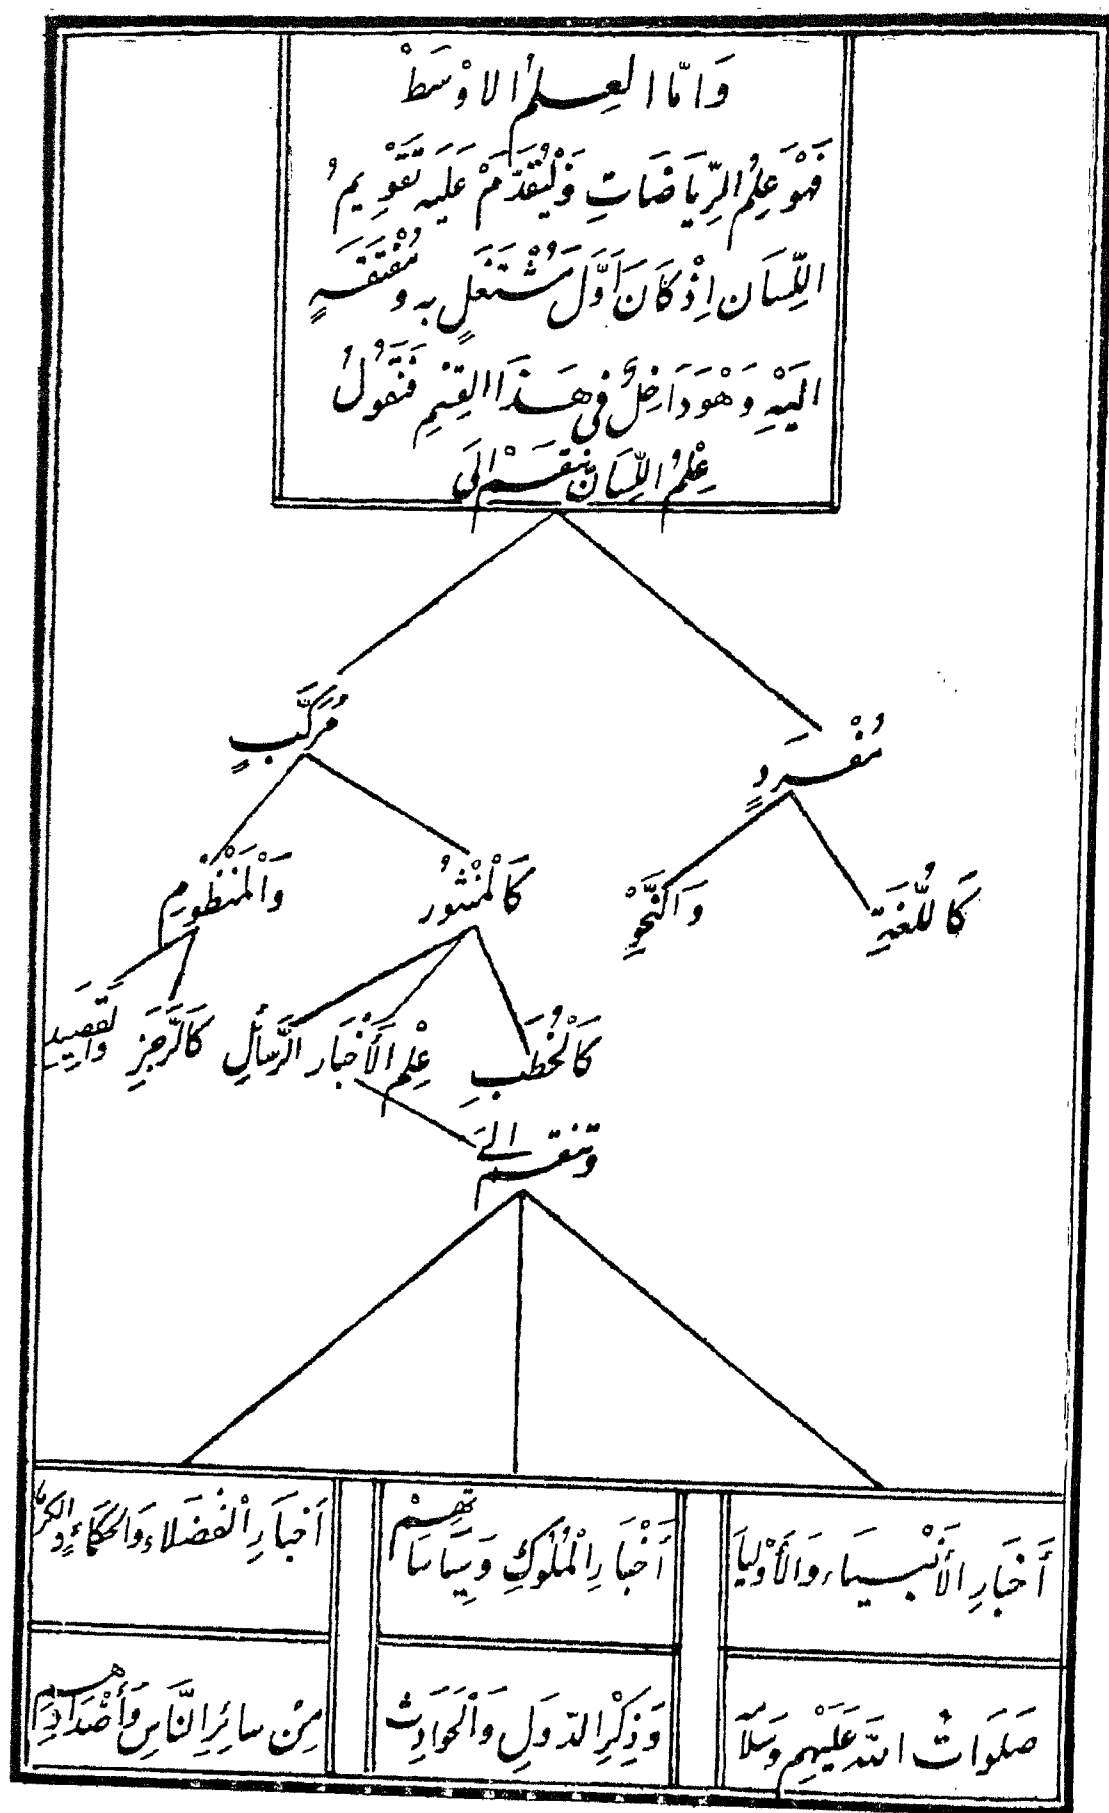 وَامّا العِلمُ الاوْسَطْ
فَهْوَ عِلمُ الرِّيَاضَاتِ وَلْيُقَدَّمْ عَلَيهِ تَقَوِيمُ
اللِّسَان اِذْ كَانَ اَوَّلَ مُشْتَغَلٍ بِهِ وَمُفْتَقَرٍ
اليَهِ وَهْوَ دَاخِلٌ فى هَذَا القِسْمِ فَنَقُولُ
عِلْمُ اللِّسَان ينقَسمْ الَى
مُفْرَدٍ
مُرَكَّبٍ
كَاللُّغَةِ
وَالنَّحْوِ
كَالْمَنْثُورِ
وَالْمَنْظُومِ
كَالْخُطَبِ
عِلْم الأَخْبَار
الرَّسَائلِ
كَالرَّجَزِ
وَالقَصِيدِ
وتنقسم الىَ
أَخْبَارِ الأَنْبِيَاء وَالأَوْليَا
صَلَوَاتُ اللّه عَلَيْهِم وَسَلَا
أَخْبَارِ الْمُلُوكِ وَسِيَاسَاتهِمْ
وَذِكْرِ الدّوَلِ وَالْحَوَادِث
أَخْبَارِ الْفُضَلاءِ وَالحُكَمَاءِ وَالكرَ
مِنْ سائِرِ النَّاسِ وَأَضْدَادِهِم